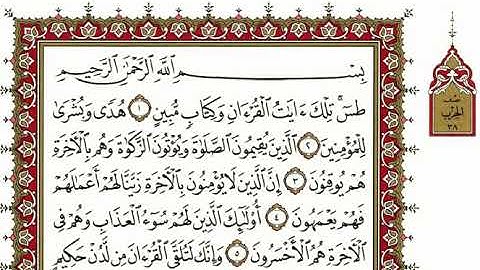 بِسْمِ ٱللَّهِ ٱلرَّحْمَٰنِ ٱلرَّحِيمِ
طسٓ ۚ تِلْكَ ءَايَٰتُ ٱلْقُرْءَانِ وَكِتَابٍ مُّبِينٍ ١ هُدًى وَبُشْرَىٰ
لِلْمُؤْمِنِينَ ٢ ٱلَّذِينَ يُقِيمُونَ ٱلصَّلَوٰةَ وَيُؤْتُونَ ٱلزَّكَوٰةَ وَهُم بِٱلْءَاخِرَةِ
هُمْ يُوقِنُونَ ٣ إِنَّ ٱلَّذِينَ لَا يُؤْمِنُونَ بِٱلْءَاخِرَةِ زَيَّنَّا لَهُمْ أَعْمَٰلَهُمْ
فَهُمْ يَعْمَهُونَ ٤ أُو۟لَٰٓئِكَ ٱلَّذِينَ لَهُمْ سُوٓءُ ٱلْعَذَابِ وَهُمْ فِى
ٱلْءَاخِرَةِ هُمُ ٱلْأَخْسَرُونَ ٥ وَإِنَّكَ لَتُلَقَّى ٱلْقُرْءَانَ مِن لَّدُنْ حَكِيمٍ
نصف
الحزب
٣٨